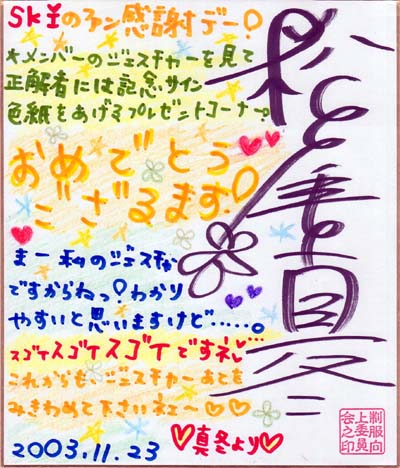 SKiのファン感謝デー!
メンバーのジェスチャーを見て
正解者には記念サイン
色紙をあげるプレゼントコーナー
おめでとう
ござるます!
まー私のジェスチャ
ですからねっ!わかり
やすいと思いますけど……。
スゴイスゴイスゴイですネ…
これからも、ジェスチャーあてを
みきわめて下さいネェ〜
♡真冬より♡
2003.11.23
制服向
上委員
会之印